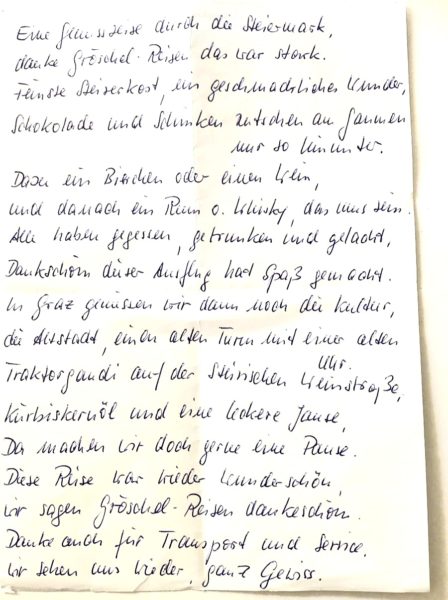 Eine Genussreise durch die Steiermark,
danke Gröschel-Reisen das war stark.
Feinste Steirerkost, ein geschmackliches Wunder,
Schokolade und Schinken rutschen am Gaumen
nur so hinunter.
Dazu ein Bierchen oder einen Wein,
und danach ein Rum o. Whisky, das muss sein.
Alle haben gegessen, getrunken und gelacht,
Dankschön dieser Ausflug hat Spaß gemacht.
In Graz genießen wir dann noch die Kultur,
die Altstadt, einen alten Turm mit einer alten
Uhr.
Traktorgaudi auf der Steirischen Weinstraße,
Kürbiskernöl und eine leckere Jause,
Da machen wir doch gerne eine Pause.
Diese Reise war wieder wunderschön,
wir sagen Gröschel-Reisen dankeschön.
Danke auch für Transport und Service,
wir sehen uns wieder, ganz Gewiss.